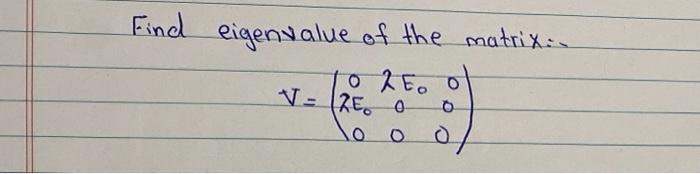 Find eigenvalue of the matrix:-
V = (0 λE₀ 0
λE₀ 0 0
0 0 0)